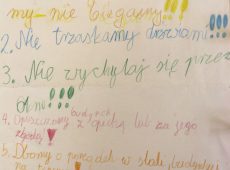 my - nie biegajmy!!!
2. Nie trzaskamy drzwiami!!!
3. Nie wychylaj się przez
okno!!!
4. Opuszczamy budynek z opieką lub za jego
zgodą!
5. Dbamy o porządek w stali, budynku
na